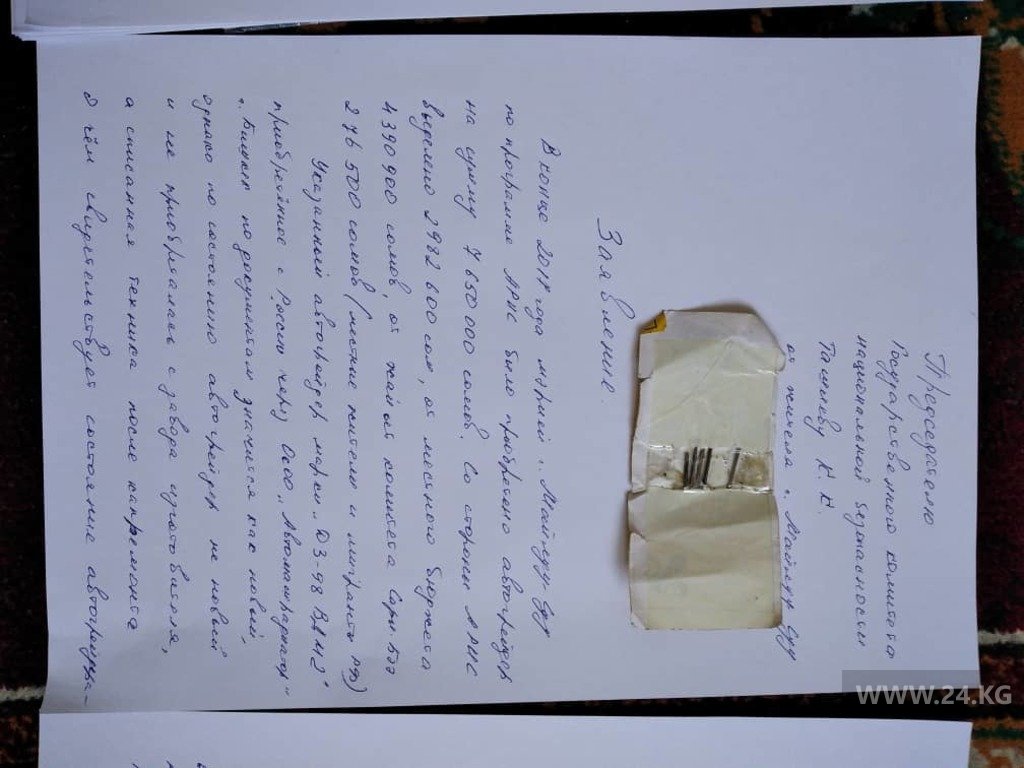 Председателю
Государственного комитета
национальной безопасности
Ташиеву К. К.
от жителя г. Майлуу-Суу
Заявление.
В конце 2018 года мэрией г. Майлуу-Суу
по программе АРИС было приобретено автогрейдер
на сумму 7 650 000 сомов. Со стороны АРИС
выделено 2982 600 сом, от местного бюджета
4390900 сомов, от жайыт комитета
276 500 сомов (местные жители и мигранты РФ)
Указанный автогрейдер марки „ДЗ-98 В.М2"
приобретённое с России через ОсОО „
„Бишкек по документам значится как новый,
однако по состоянию автогрейдер не новый
и не приобреталась с завода изготовителя,
а списанная техника после капремонта
о чём свидетельствует состояние автогрейдера-
WWW.24.KG